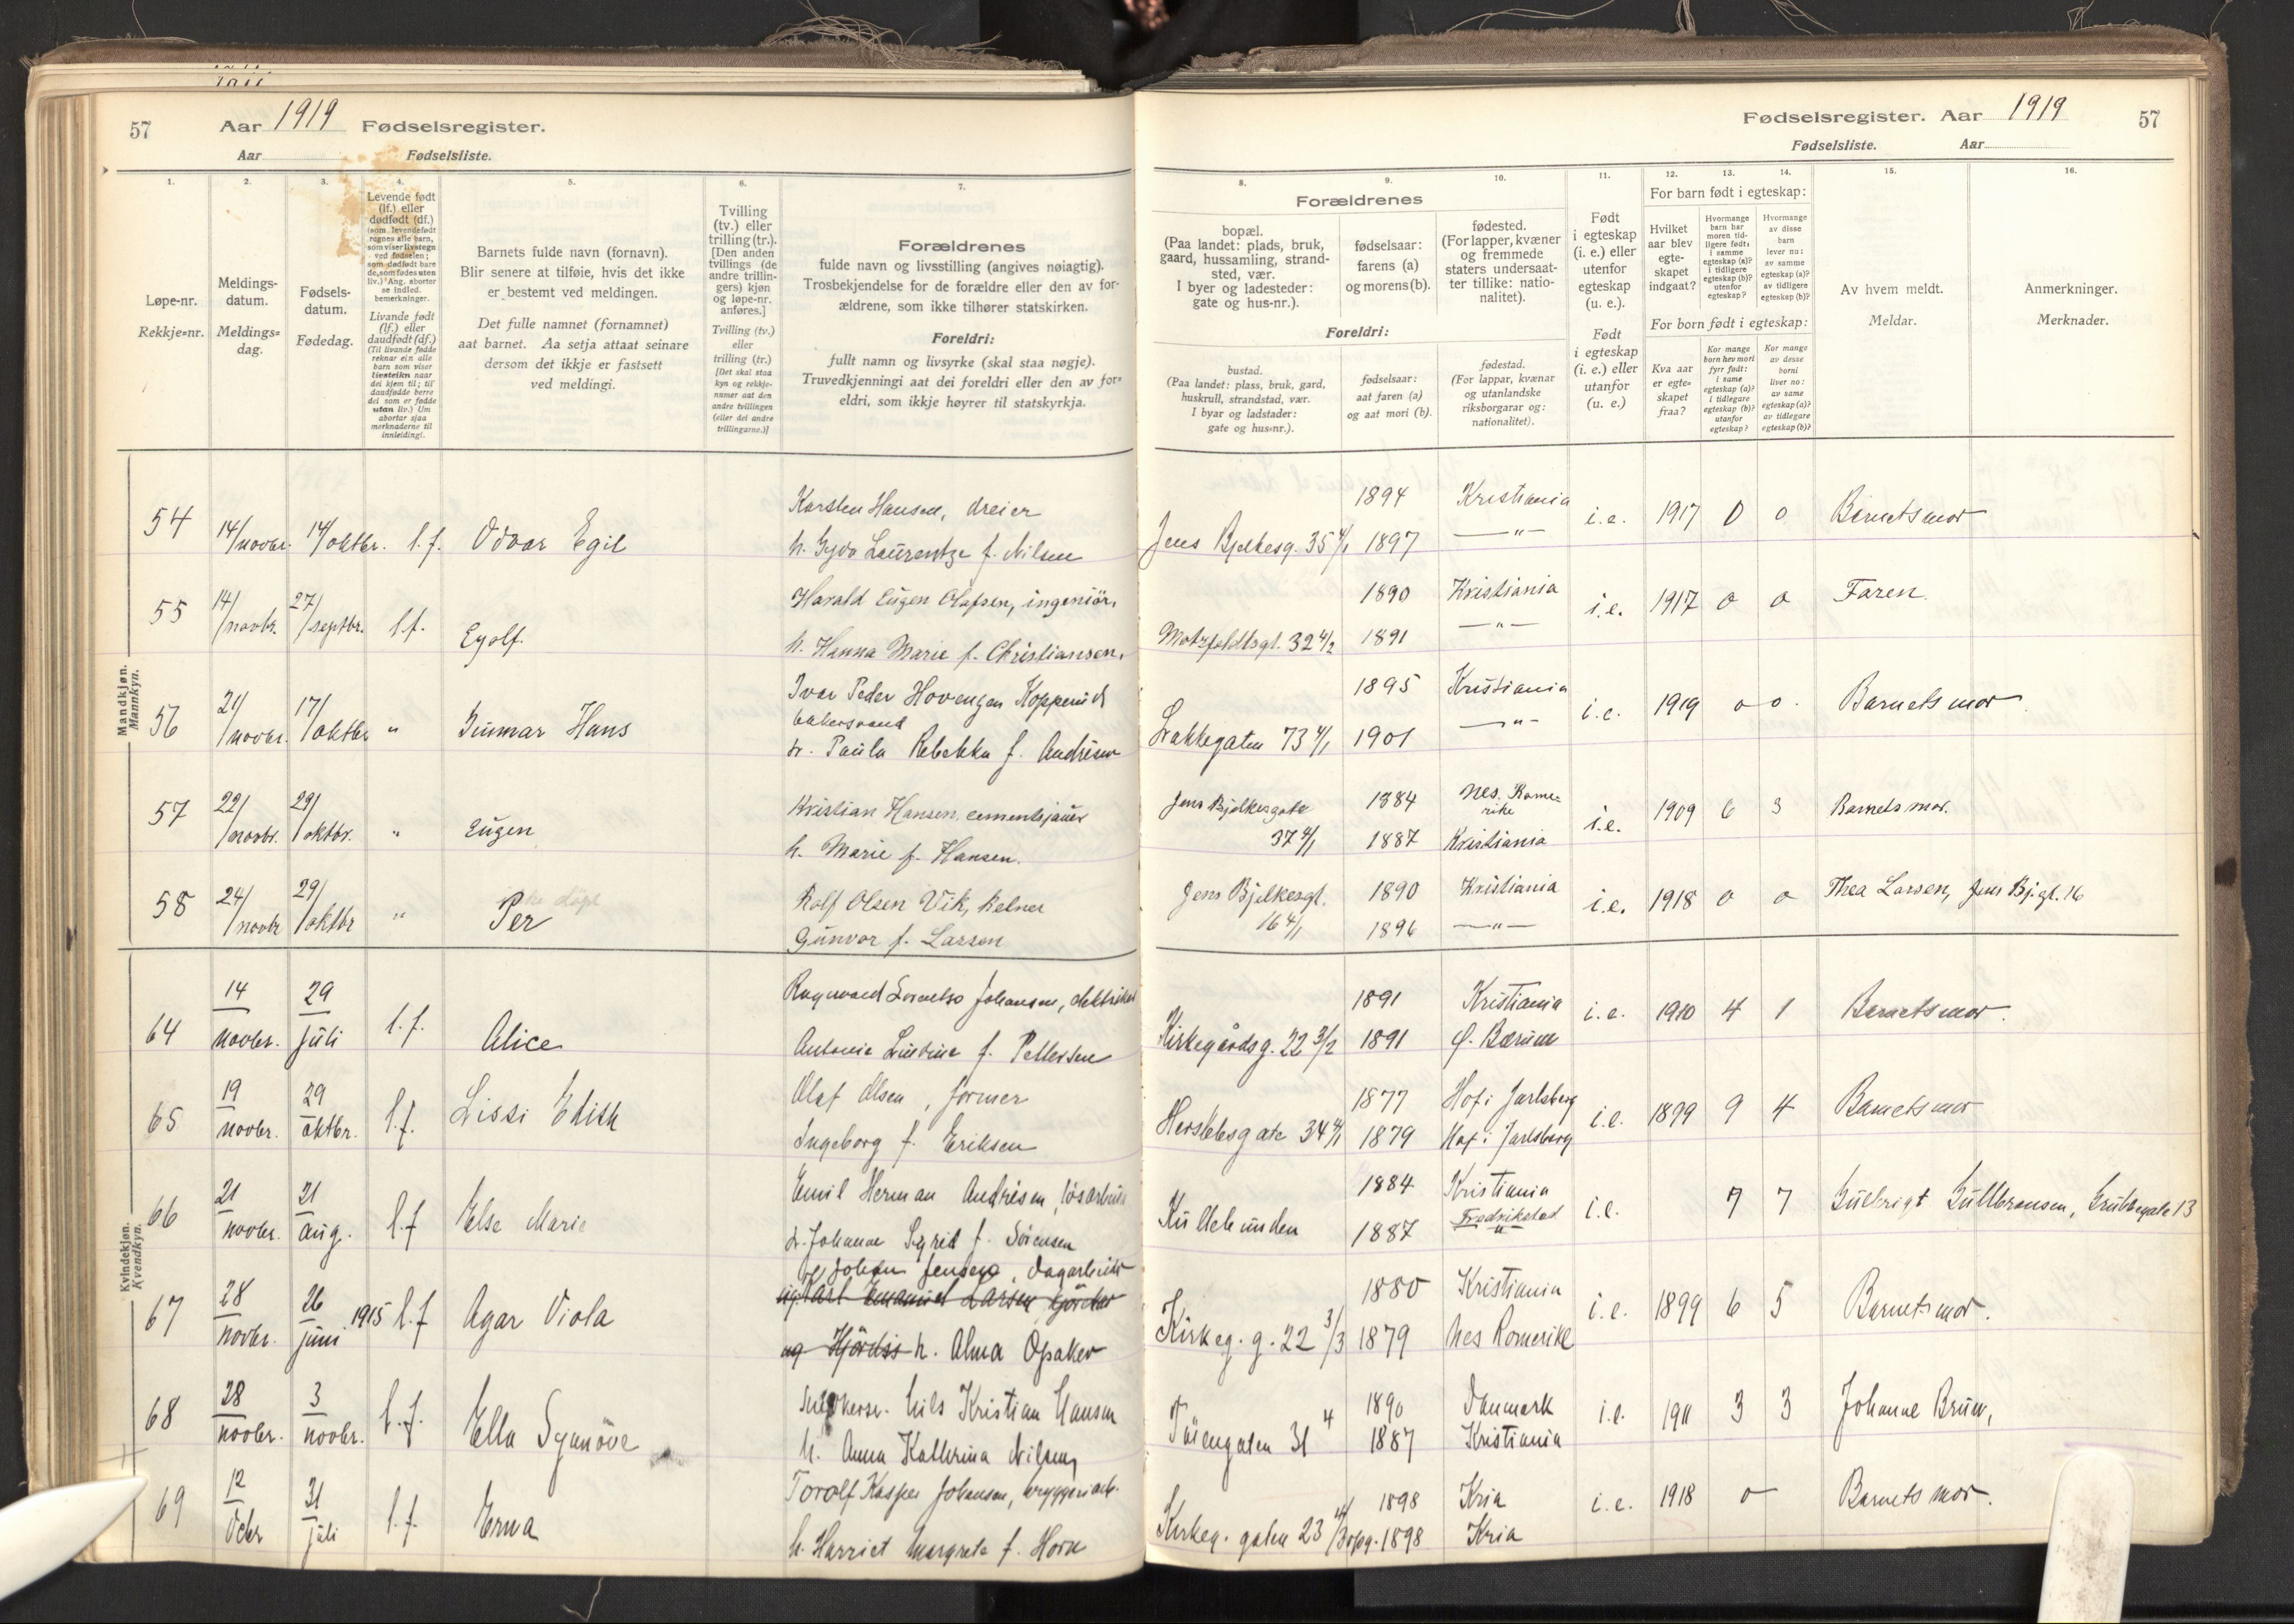 57 Aar 1919 Fødselsregister.
Aar Fødselsliste.
1. 2. 3. 4. 5. 6. 7.
Løpe-nr.
Rekkje=nr.
Meldings-
datum.
Meldings=
dag.
Fødsels-
datum.
Fødedag.
Levende født
(lf.) eller
dødfødt (df.)
(som levendefødt
regnes alle barn,
som viser livstegn
ved fødselen;
som dødfødt bare
de, som fødes uten
liv.) Ang. aborter
se indled.
bemerkninger.
Livande født
(lf.) eller
daudfødt (df.)
(Til livande fødde
reknar ein alle
barn som viser
livsteikn naar
dei kjem til; til
daudfødde berre
dei som er fødde
utan liv.) Um
abortar sjaa
merknaderne til
innleidingi.
Barnets fulde navn (fornavn).
Blir senere at tilføie, hvis det ikke
er bestemt ved meldingen.
Det fulle namnet (fornamnet)
aat barnet. Aa setja attaat seinare
dersom det ikkje er fastsett
ved meldingi.
Tvilling
(tv.) eller
trilling (tr.).
[Den anden
tvillings (de
andre trillin-
gers) kjøn
og løpe-nr.
anføres.]
Tvilling (tv.)
eller
trilling (tr.)
[Det skal staa
kyn og rekkje-
numer aat den
andre tvillingen
(eller dei andre
trillingarne.)]
Forældrenes
fulde navn og livsstilling (angives nøiagtig).
Trosbekjendelse for de forældre eller den av for-
ældrene, som ikke tilhører statskirken.
Foreldri:
fullt namn og livsyrke (skal staa nøgje).
Truvedkjenningi aat dei foreldri eller den av for=
eldri, som ikkje høyrer til statskyrkja.
Mandkjøn.
Mannkyn.
54 14/novbr. 14/oktbr. l.f. Odvar Egil
Karsten Hansen, dreier
h. Gyda Laurentze f. Nilsen
55 14/novbr. 27/septbr. l.f. Eyolf.
Harald Eugen Olafsen, ingeniör.
h. Hanna Marie f. Christiansen.
56 21/novbr. 17/oktbr " Gunmar Hans
Ivar Peder Hovengen Kopperud
bakersvend
h. Paula Rebekka f. Andrésen
57 22/novbr. 29/oktbr. " Eugen
Kristian Hansen,
h. Marie f. Hansen.
58 24/novbr 29/oktbr " Per
Rolf Olsen Vik, kelner
Gunvor f. Larsen
Kvindekjøn.
Kvendkyn.
64 14 novbr. 29 juli l.f. Alice
Johansen,
Antonie f. Pettersen
65 19 novbr. 29 oktbr. l.f. Lissi Edith
Olaf Olsen, former
Ingeborg f. Eriksen
66 21 novbr. 21 aug. l.f Else Marie
Emil Herman Andrésen,
h. Johanne Sigrid f. Sörensen
67 28 novbr. 26 juni 1915 l.f Agar Viola
Johan Jensen, dagarbeider
Karl Emanuel Larsen kjörekar
og Hjördis h. Alma Opaker
68 28 novbr. 3 novbr. l.f. Ella Synnöve
Nils Kristian Hansen
h. Anna Kathrina Nilsen
69 12 Debr 31 juli l.f. Erna
Torolf Kasper Johansen, bryggeriarb.
h. Harriet Margrete f. Horn
Fødselsregister. Aar 1919 57
Fødselsliste. Aar
8. 9. 10. 11. 12. 13. 14. 15. 16.
Forældrenes
bopæl.
(Paa landet: plads, bruk,
gaard, hussamling, strand-
sted, vær.
I byer og ladesteder:
gate og hus-nr.).
fødselsaar:
farens (a)
og morens (b).
fødested.
(For lapper, kvæner
og fremmede
staters undersaat-
ter tillike: natio-
nalitet).
Foreldri:
bustad.
(Paa landet: plass, bruk, gard,
huskrull, strandstad, vær.
I byar og ladstader:
gate og hus=nr.).
fødselsaar:
aat faren (a)
og aat mori (b).
fødestad.
(For lappar, kvænar
og utanlandske
riksborgarar og:
nationalitet).
Født
i egteskap
(i. e.) eller
utenfor
egteskap
(u. e.).
Født
i egteskap
(i. e.) eller
utanfor
(u. e.)
For barn født i egteskap:
Hvilket
aar blev
egte-
skapet
indgaat?
Hvormange
barn har
moren tid-
ligere født:
i samme
egteskap (a)?
i tidligere
egteskap (b)?
utenfor
egteskap?
Hvormange
av disse
barn
lever nu:
av samme
egteskap (a)?
av tidligere
egteskap (b)?
For born født i egteskap:
Kva aar
er egte=
skapet
fraa?
Kor mange
born hev mori
fyrr født:
i same
egteskap (a)?
i tidlegare
egteskap (b)?
utanfor
egteskap?
Kor mange
av desse
borni
liver no:
av same
egteskap (a)?
av tidlegare
egteskap (b)?
Av hvem meldt.
Meldar.
Anmerkninger.
Merknader.
1894 Kristiania i.e. 1917 0 0 Barnets mor
Jens Bjelkesg. 35 4/1 1897 — " —
1890 Kristiania i.e. 1917 0 0 Faren.
Motzfeldtsgt. 32 4/2 1891 — " —
1895 Kristiania i.e. 1919 0 0. Barnets mor
Lakkegaten 73 4/1 1901 — " —
Jens Bjelkesgate 1884 Nes. Rome=
rike i.e. 1909 6 3 Barnets mor.
37 4/1 1887 Kristiania
Jens Bjelkesgt. 1890 Kristiania i.e. 1918 0 0 Thea Larsen, Jens Bj.gt. 16
16 4/1 1896 — " —
1891 Kristiania i.e. 1910 4 1 Barnets mor.
Kirkegårdsg. 22 3/2 1891 Ø. Bærum
1877 Hof i Jarlsberg i.e. 1899 9 4 Barnets mor
Herslebsgate 34 4/1 1879 Hof i Jarlsberg
1884 Kristiania i.e. 7 7 Gulbrigt Gullbransen, Grubbegate 13
Kullebunden 1887 Fredrikstad
1880 Kristiania i.e. 1899 6 5 Barnets mor.
Kirkeg. g. 22 3/3 1879 Nes Romerike
1890 Danmark i.e. 1911 3 3 Johanne Bruun,
Töiengaten 31 4 1887 Kristiania
1898 Kria i.e. 1918 0 — Barnets mor.
Kirkeg. gaten 23 1898 Kria